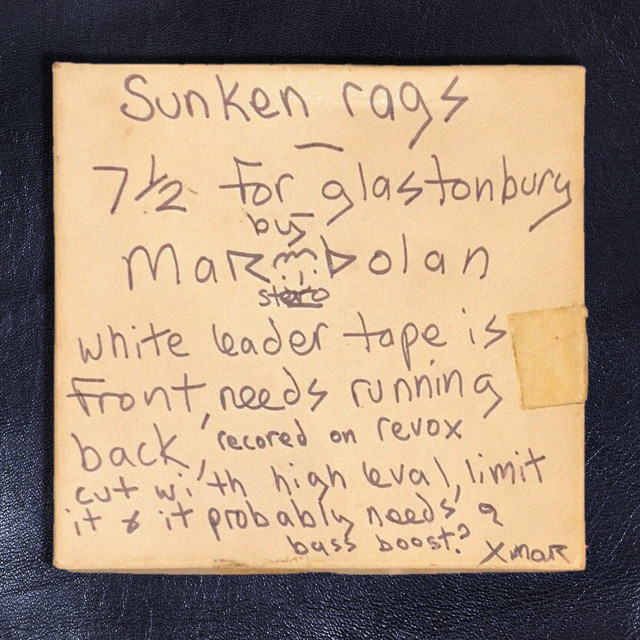 Sunken rags
—
7 1/2 for glastonbury
by
Marc Bolan
stero
white leader tape is
front, needs running
back, recored on revox
cut with high leval, limit
it & it probably needs a
bass boost? x marc